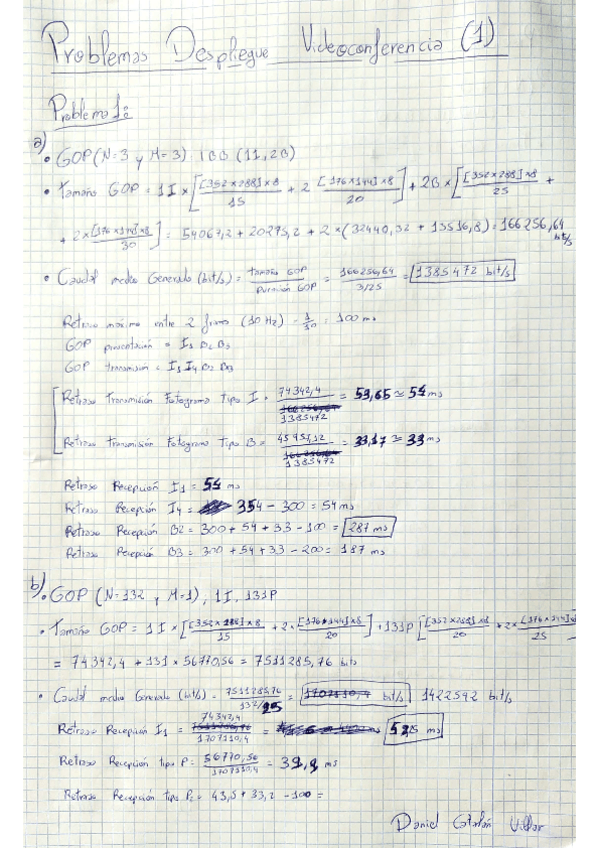 Problemas Despliegue Videoconferencia (1)
Problema 1:
a)
• GOP (N=3 y M=3) IBB (1I, 2B)
• Tamaño GOP = 1I × [ [352×288]×8 / 15 + 2 [176×144]×8 / 20 ] + 2B × [ [352×288]×8 / 25 +
+ 2× [176×144]×8 / 30 ] = 54067,2 + 20275,2 + 2×(32440,32 + 13516,8) = 166256,64 bit/s
• Caudal medio Generado (bit/s) = Tamaño GOP / Duración GOP = 166256,64 / 3/25 = 1385472 bit/s
Retraso máximo entre 2 frames (10 Hz) = 1/10 = 100 ms
GOP presentación = I1 B2 B3
GOP transmisión = I1 I4 B2 B3
Retraso Transmisión Fotograma Tipo I = 74342,4 / 1385472 = 53,65 ≈ 54 ms
Retraso Transmisión Fotograma Tipo B = 45957,12 / 1385472 = 33,17 ≈ 33 ms
Retraso Recepción I1 = 54 ms
Retraso Recepción I4 = 354 - 300 = 54 ms
Retraso Recepción B2 = 300 + 54 + 33 - 100 = 287 ms
Retraso Recepción B3 = 300 + 54 + 33 - 200 = 187 ms
b)
• GOP (N=132 y M=1), 1I, 131P
• Tamaño GOP = 1I × [ [352×288]×8 / 15 + 2× [176×144]×8 / 20 ] + 131P [ [352×288]×8 / 20 + 2× [176×144]×8 / 25
= 74342,4 + 131 × 56770,56 = 7511285,76 bits
• Caudal medio Generado (bit/s) = 7511285,76 / 132/25 = 1707110,4 bit/s 1422592 bit/s
Retraso Recepción I1 = 74342,4 / 1707110,4 = 52,5 ms
Retraso Recepción tipo P = 56770,56 / 1707110,4 = 39,9 ms
Retraso Recepción tipo P2 = 43,5 + 33,2 - 100 =
Daniel Catalán Villar